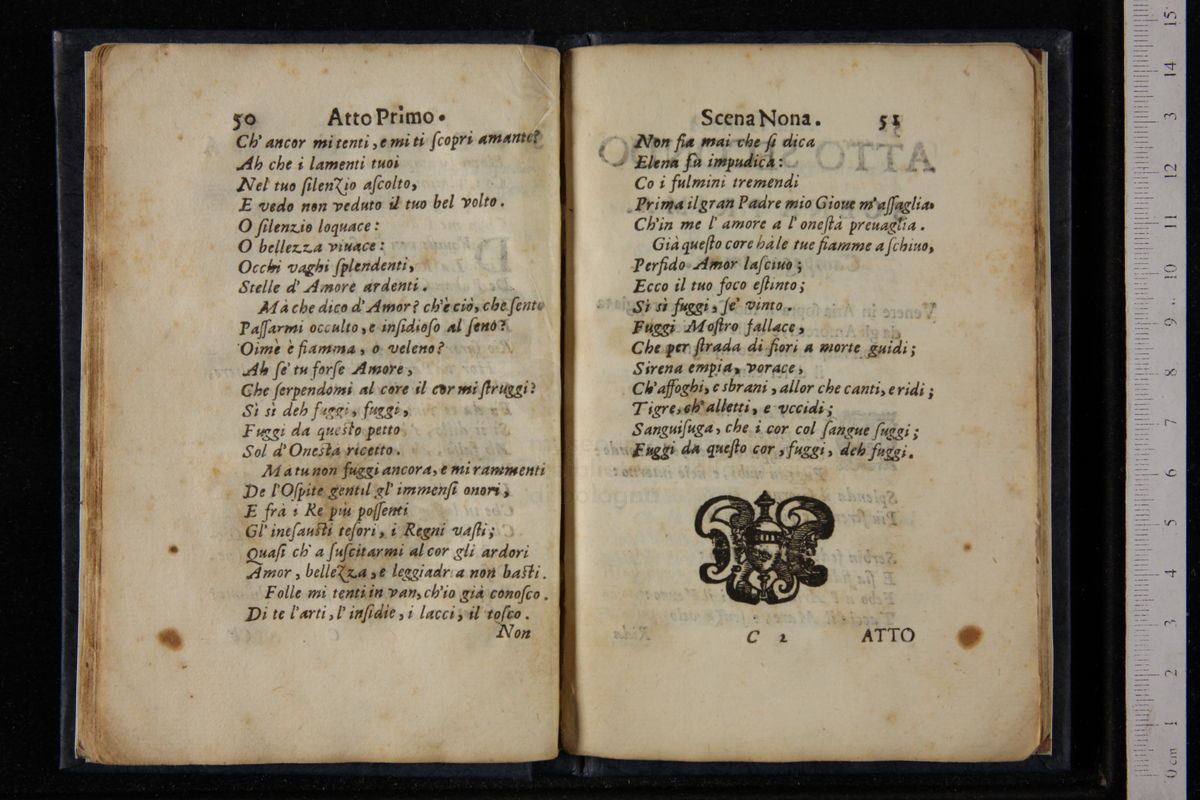 50 Atto Primo.
Ch' ancor mi tenti, e mi ti ſcopri amante?
Ah che i lamenti tuoi
Nel tuo ſilenzio aſcolto,
E vedo non veduto il tuo bel volto.
O ſilenzio loquace:
O bellezza viuace:
Occhi vaghi ſplendenti,
Stelle d' Amore ardenti.
Mà che dico d' Amor? ch'è ciò, che ſento
Paſſarmi occulto, e inſidioſo al ſeno?
Oimè è fiamma, o veleno?
Ah ſe' tu forſe Amore,
Che ſerpendomi al core il cor mi ſtruggi?
Sì sì deh fuggi, fuggi,
Fuggi da queſto petto
Sol d' Oneſtà ricetto.
Ma tu non fuggi ancora, e mi rammenti
De l'Oſpite gentil gl' immenſi onori,
E frà i Re più poſſenti
Gl' ineſauſti teſori, i Regni vaſti;
Quaſi ch' a ſuſcitarmi al cor gli ardori
Amor, bellezza, e leggiadr a non baſti.
Folle mi tenti in van, ch'io già conoſco.
Di te l'arti, l' inſidie, i lacci, il toſco.
Non
Scena Nona. 51
Non fia mai che ſi dica
Elena fù impudica:
Co i fulmini tremendi
Prima il gran Padre mio Gioue m'aſſaglia.
Ch'in me l' amore a l' oneſtà preuaglia.
Già queſto core hà le tue fiamme a ſchiuo,
Perfido Amor laſciuo;
Ecco il tuo foco eſtinto;
Sì sì fuggi, ſe' vinto.
Fuggi Moſtro fallace,
Che per ſtrada di fiori a morte guidi;
Sirena empia, vorace,
Ch'affoghi, e sbrani, allor che canti, e ridi;
Tigre, ch' alletti, e vccidi;
Sanguiſuga, che i cor col ſangue ſuggi;
Fuggi da queſto cor, fuggi, deh fuggi.
C 2 ATTO